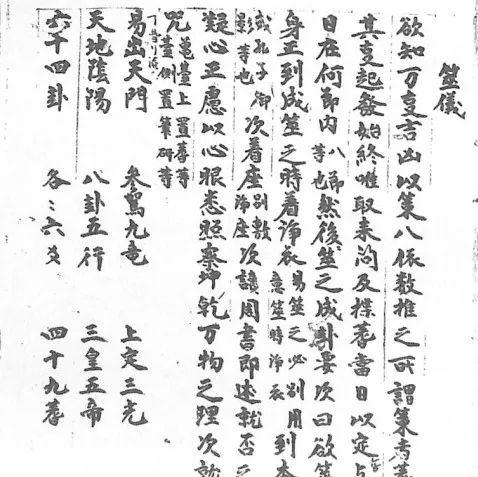 筮儀
欲知万變吉凶以策八依数推之所謂策者
其變起發始終唯取来問及揲蓍當日以定占
日在何節内八節等也然後筮之成卦要次曰欲筮
身正到成筮之時着浄衣易筮之必別用意筮時浄衣到本
或孔子御影等也次着座別敷浄座次讀周書即述就否之
疑心正慮以心眼悉照察坤乾万物之理次就
咒臺上置蓍等臺側置筆研等
易出天門 參駕九竜 上定三光
天地陰陽 八卦五行 三皇五帝
六十四卦 各〻六爻 四十九蓍